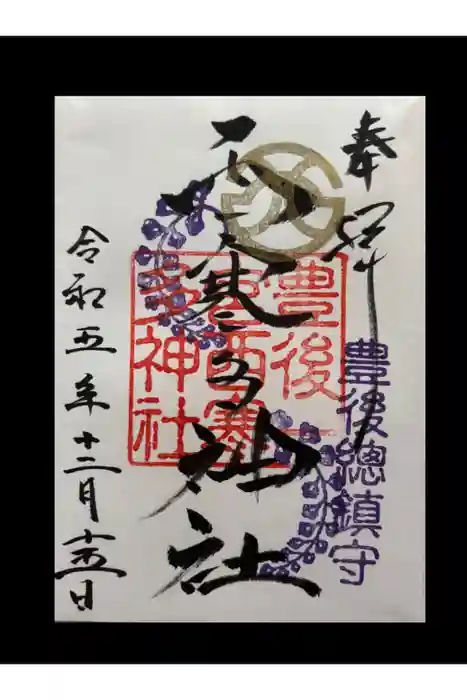 奉拝
豊後總鎮守
西寒多神社
豊後一
宮西寒
多神社
令和五年十二月十五日